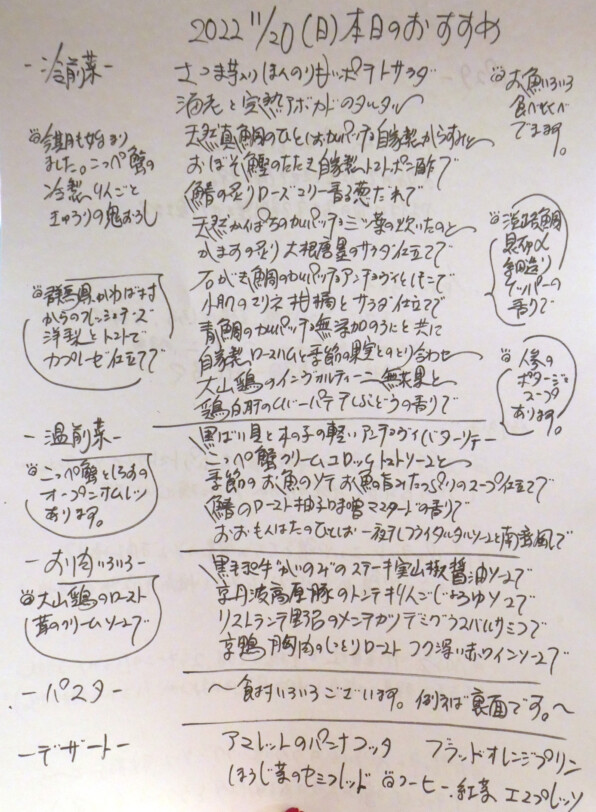 2022 11/20(日)本日のおすすめ
-冷前菜-
さつま芋入りほんのり甘いポテトサラダ
海老と完熟アボカドのタルタル
天然真鯛のひとしおカルパッチョ自家製からすみと
おぼそ鰹のたたき自家製トマトポン酢で
鰆の炙りローズマリー香る葱だれで
天然かんぱちのカルパッチョ
かますの炙り大根のサラダ仕立てで
石がき鯛のカルパッチョアンチョヴィとレモンで
小肌のマリネ柑橘とサラダ仕立てで
青鯛のカルパッチョ無添加のうにと共に
自家製ロースハムと季節の果実とのとり合わせ
大山鶏のインヴォルティーニ無花果と
鶏白肝のレバーパテ干しぶどうの香りで
お魚いろいろ
食べくらべ
できます。
今期も始まり
ました。こっペ蟹の
冷製りんごと
きゅうりの鬼おろし
鯛
昆布〆
細造り
ケッパーの
香りで
群馬県かわば村
からのフレッシュチーズ
洋梨とトマトで
カプレーゼ仕立てで
人参の
ポタージュ
スープ
あります。
-温前菜-
黒ばい貝と木の子の軽いアンチョヴィバターソテー
こっペ蟹クリームコロッケトマトソースと
季節のお魚のソテーお魚の旨みたっぷりのスープ仕立てで
鰆のロースト柚子味噌マスタードの香りで
おおもんはたのひとしお一夜干しフライタルタルソースと南蛮風で
こっペ蟹としらすの
オープンオムレツ
あります。
-お肉いろいろ-
黒毛和牛かいのみのステーキ実山椒醤油ソースで
京丹波高原豚のトンテキりんごしょうゆソースで
リストランテ野呂のメンチカツデミグラスバルサミコで
京鴨胸肉のしっとりローストコク深い赤ワインソースで
大山鶏のロースト
茸のクリームソースで
-パスタ-
～食材いろいろございます。例えば裏面です。～
-デザート-
アマレットのパンナコッタ ブラッドオレンジプリン
ほうじ茶のセミフレッド コーヒー.紅茶 エスプレッソ